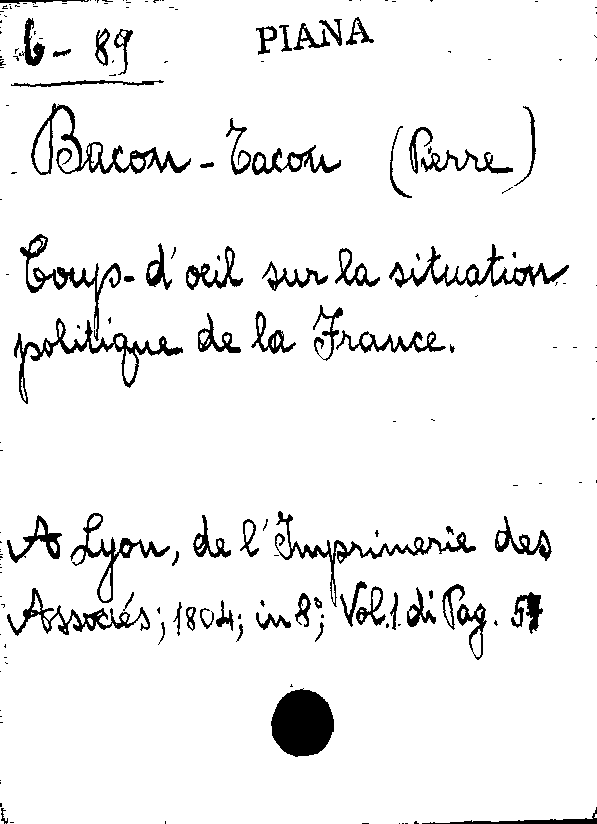 6-89
PIANA
Bacon-Tacon (Pierre)
Coup-d'oeil sur la situation
politique de la France.
A Lyon, de l'Imprimerie des
Associés; 1804; in 8°; Vol. 1 di Pag.